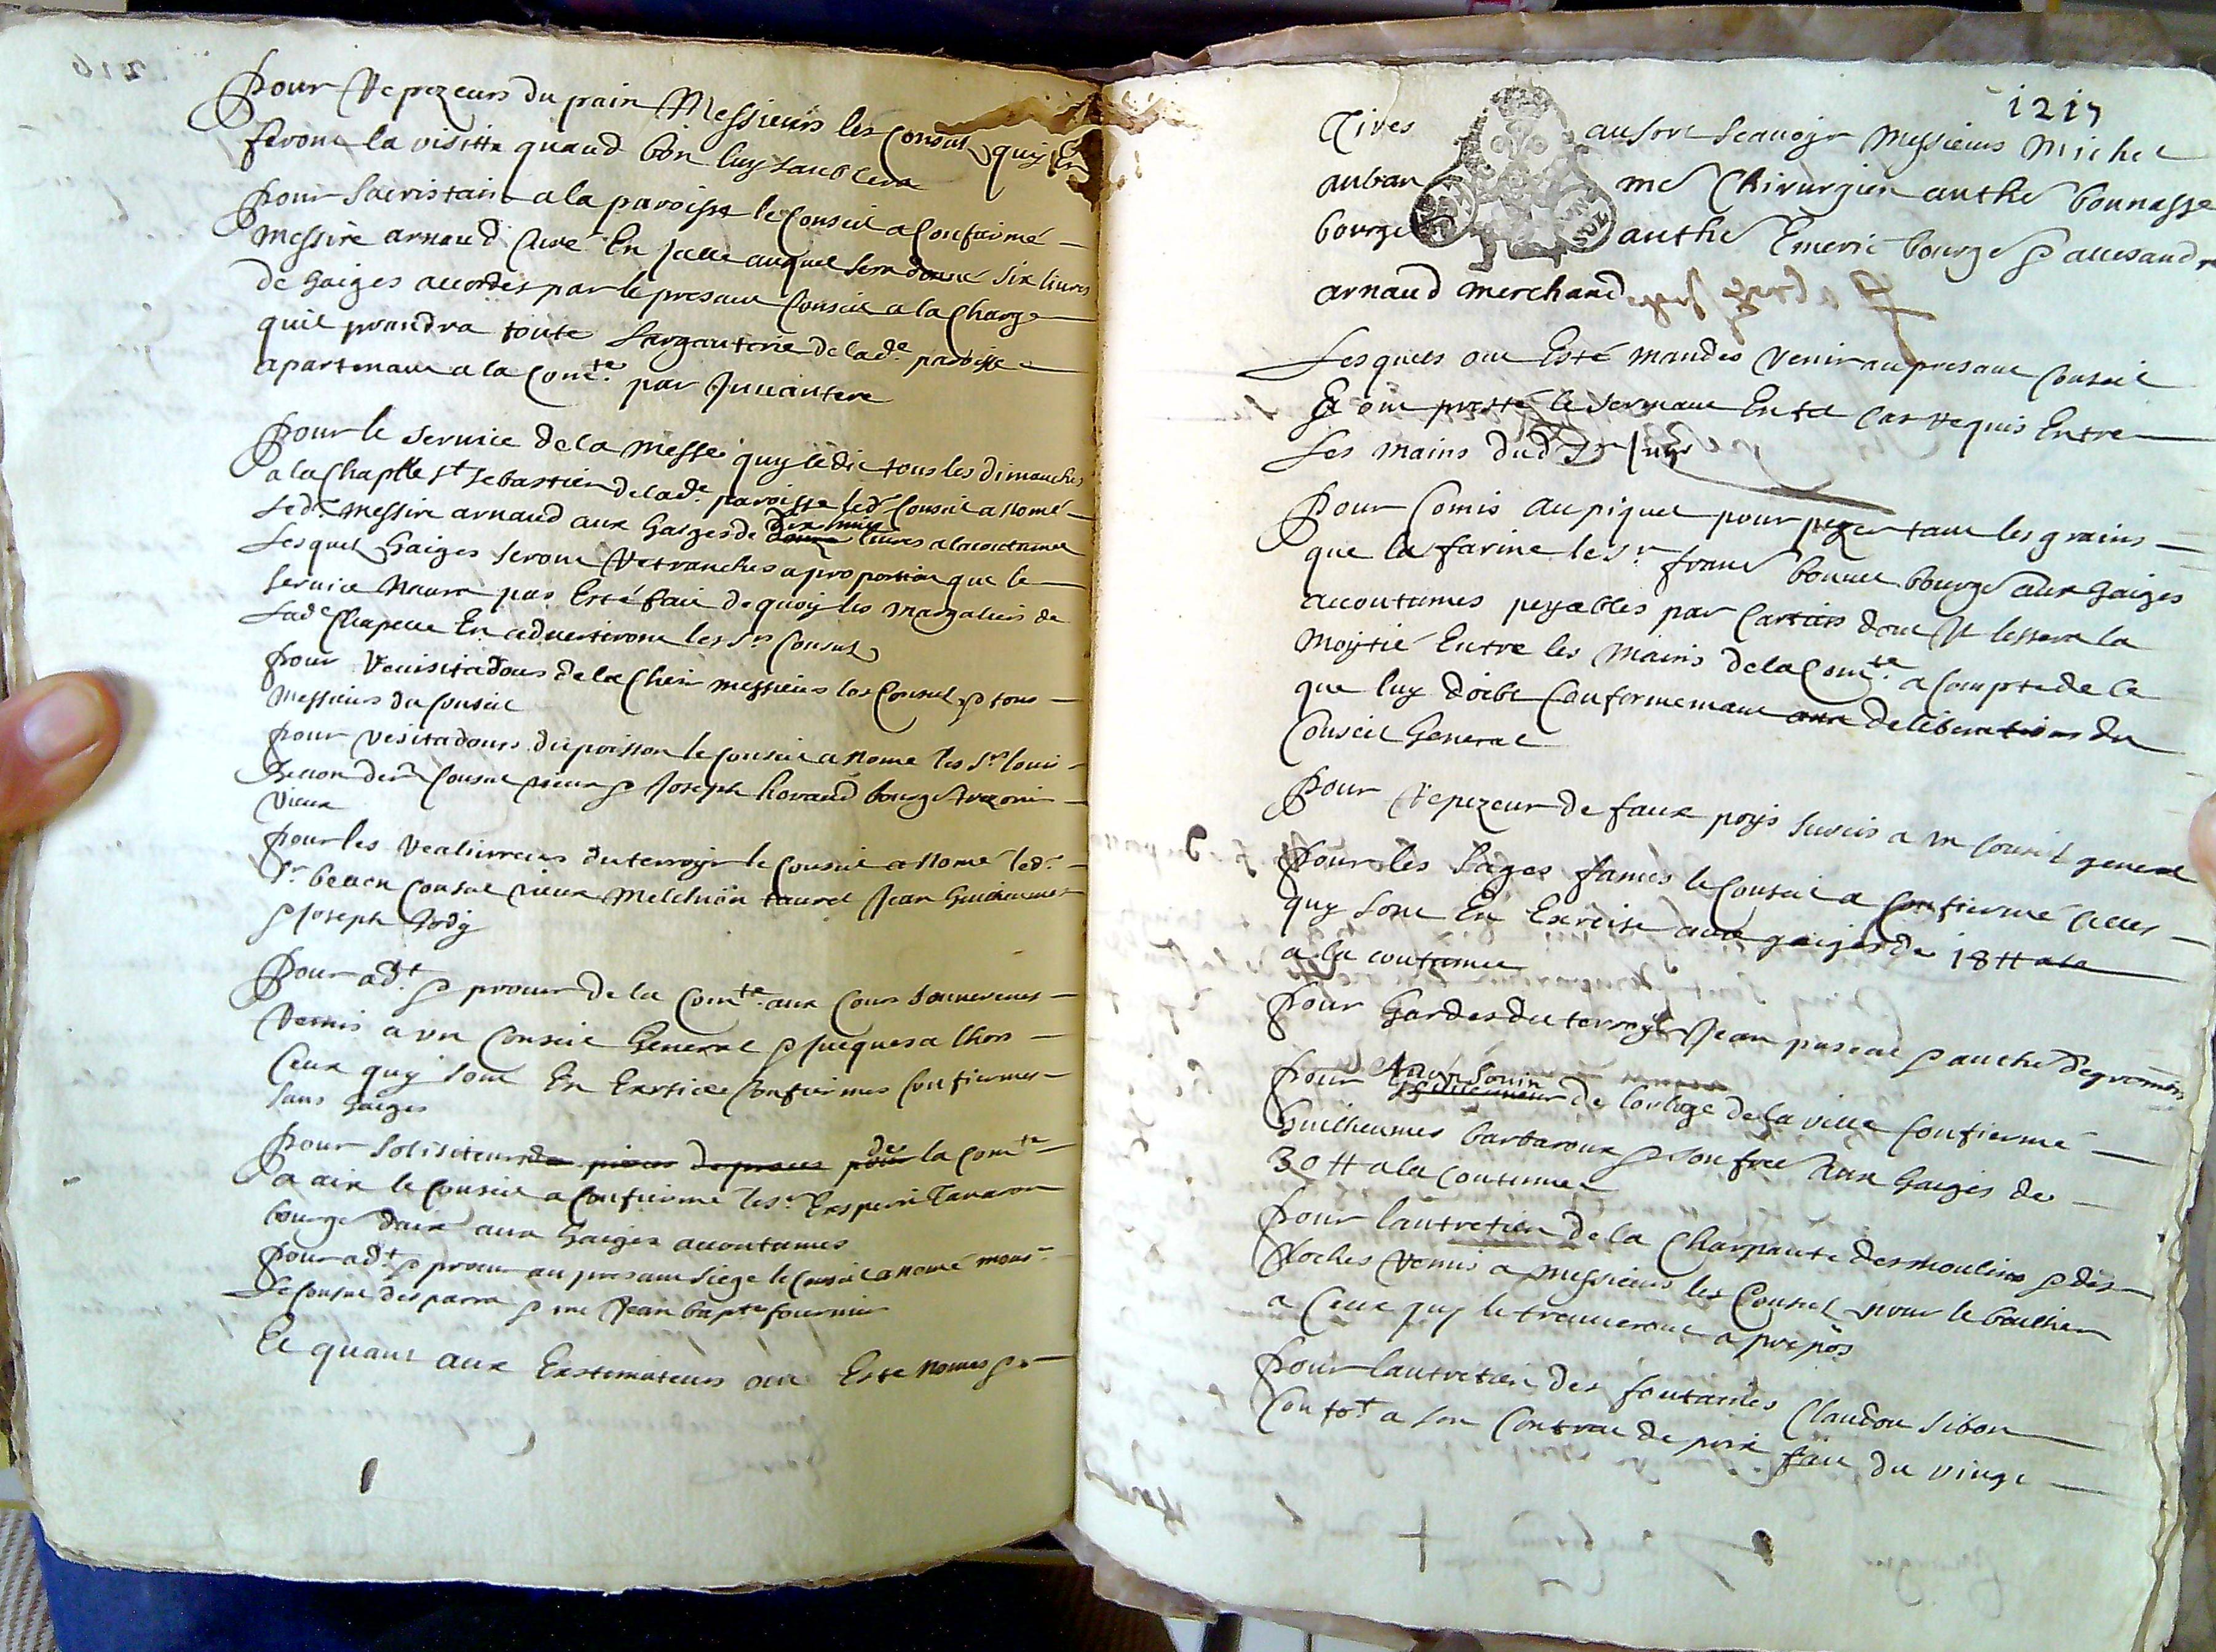 Pour Repezeurs du pain Messieurs les Consuls quy En
feront la visitte quand bon luy samblera
Pour Sacristain a la paroisse le Conseil a Confirmé
Messire arnaud Curé En jcelle auquel sera donné six livres
de Gaiges accordés par le presant Conseil a la Charge
quil prandra toute Largenterie de lad.e paroisse
apartenant a la Com.te par Juuantere
Pour le seruice de la messe quy ce dit tous les dimanches
a la Chaplle st sebastien de lad.e paroisse led.t Conseil a nomé
led.t Messire arnaud aux Gaiges de dix huit livres a la coutume
Lesquels Gaiges seront Retranches a proportion que le
seruice Naura pas Esté fait de quoy les margaliers de
Lad.e Chapelle En aduertiront les Srs Consuls
Pour Reuisitadours de la Cher messieurs les Consuls & tous
Messieurs du Conseil
Pour visitadours du poisson le Conseil a Nomé les Srs louis
Bellon der.r Consul vieux & Joseph honnoraud bourgs trezorier
Vieux
Pour les Realivreurs du terroyr le Conseil a Nomé led.t
Sr bellon Consul vieux Melchion taurel Jean Guilheumes
& Joseph
Pour ad.t & procur de la Com.te aux Cours souueraines
Remis a vn Conseil General & jusques a lhors
Ceux quy sont En Exersice Confirmes Confirmes
sans Gaiges
Pour Solisiteur des pieces de proces pour de la Com.te
a aix le Conseil a Confirmé le sr Esperit Tanaron
bourgs daix aux Gaiges acoutumés
Pour ad.t & procur au presant siege le Conseil a nomé monsr
de & me Jean bapte fournier
Et quant aux Exstimateurs ont Este nomes &
1217
Tires au sort scauoyr Messieurs Michel
auban me Chirurgien anthe bounasse
bourgs anthe Emeric bourgs & allexandre
arnaud merchand
Lesquels ont Esté mandés Venir au presant Conseil
Et ont presté le sermant En tel Cas requis Entre
Les mains dud sr Juge
Pour Comis au piquet pour pezer tant les grains
que la farine le Sr frans bonnet bourgs aux Gaiges
acoutumes peyables par Cartiers dont Il lessera la
moytié Entre les mains de la Com.te a Compte de ce
que luy doibt Conformemant aux deliberations du
Conseil General
Pour Repezeur de faux poys sursis a vn Conseil general
Pour les Sages fames le Conseil a Confirmé Celles
quy sont En Exercise aux gaiges de 18 ₶ a la
a la coutume
Pour Gardes du terroyr Jean pascal & anthe degromis
Pour de lorloge de la ville Confirmé
Guilheumes barbaroux & son frere aux Gaiges de
30 ₶ a la Coutume
Pour lantretien de la Charpante des moulins & des
Cloches Remis a Messieurs les Consuls pour le bailher
a Ceux quy le treuueront a propos
Pour lantretien des fontaines Claudon Sibon
Con fo.t a son Contrat de prix fait du vingt